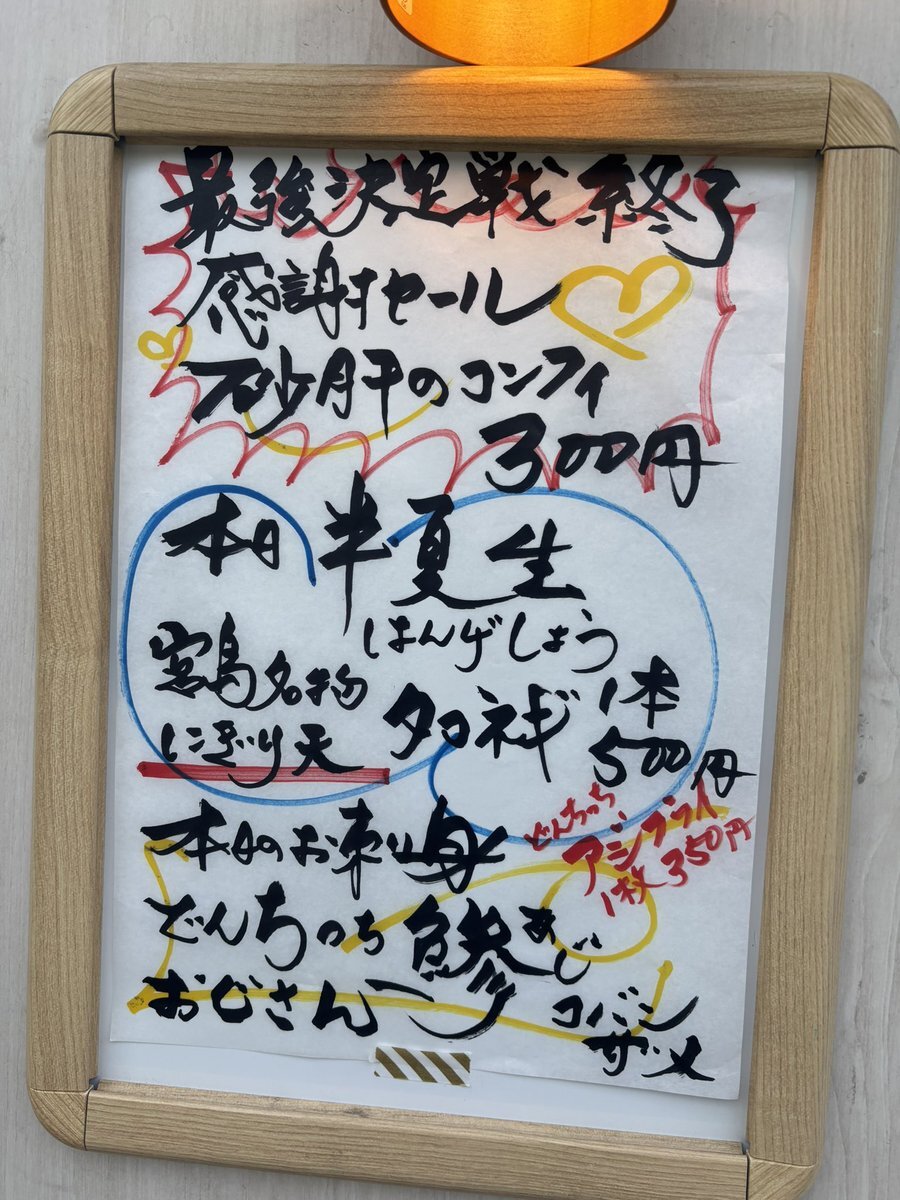 最後決定戦 終了
感謝セール
砂肝のコンフィ
300円
本日 半夏生
はんげしょう
宮島名物
にぎり天
タコネギ 1本
500円
本日のお刺身
どんちっち
アジフライ
1枚350円
どんちっち鯵あじ
おじさん
コバン
ザメ